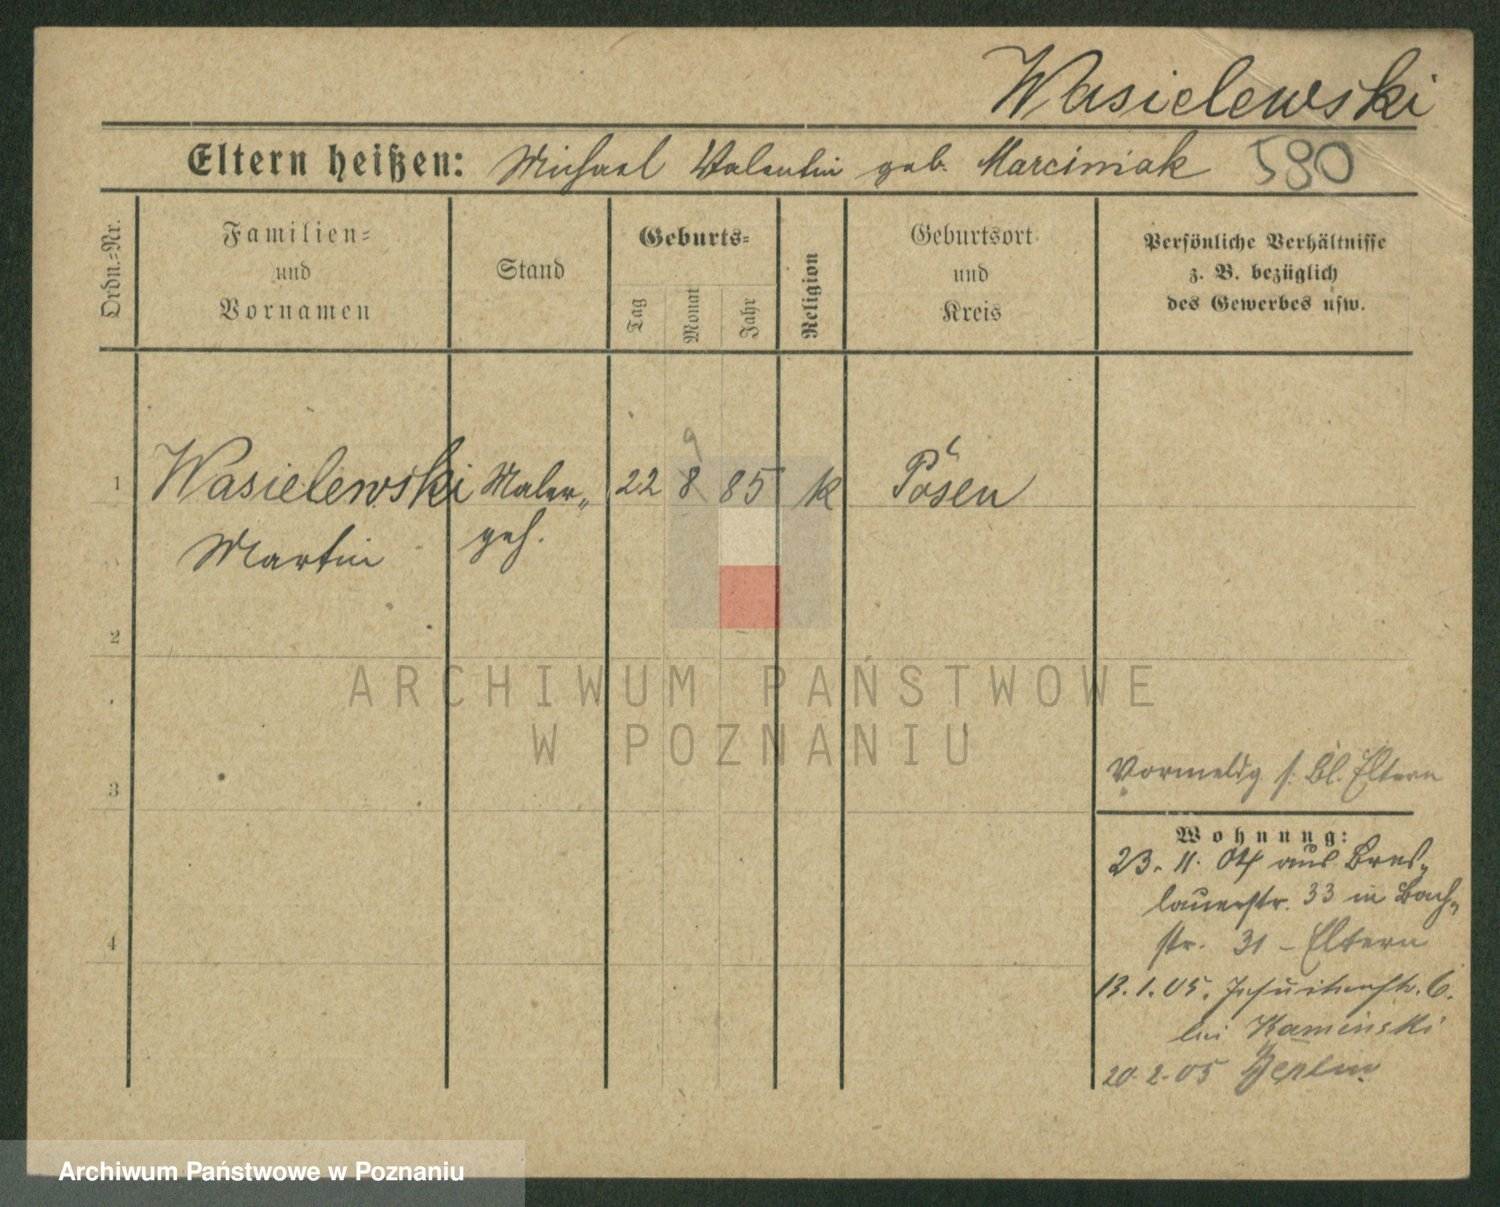 Wasielewski
Eltern heißen: Michael Valentin geb. Marciniak 580
Ordn.=Nr.
Familien=
und
Vornamen
Stand
Geburts=
Tag
Monat
Jahr
Religion
Geburtsort
und
Kreis
Persönliche Verhältnisse
z. B. bezüglich
des Gewerbes usw.
9
1 Wasielewski Maler„ 22 8 85 k Posen
Martin geh.
2
ARCHIWUM PAŃSTWOWE
W POZNANIU
3
Vormeldg s. Bl. Eltern
Wohnung:
23. 11. 04 aus Bres„
lauerstr. 33 in Bach„
4
str. 31 – Eltern
13.1.05. Jesuitenstr. 6.
bei Kaminski
20.2.05 Berlin
Archiwum Państwowe w Poznaniu